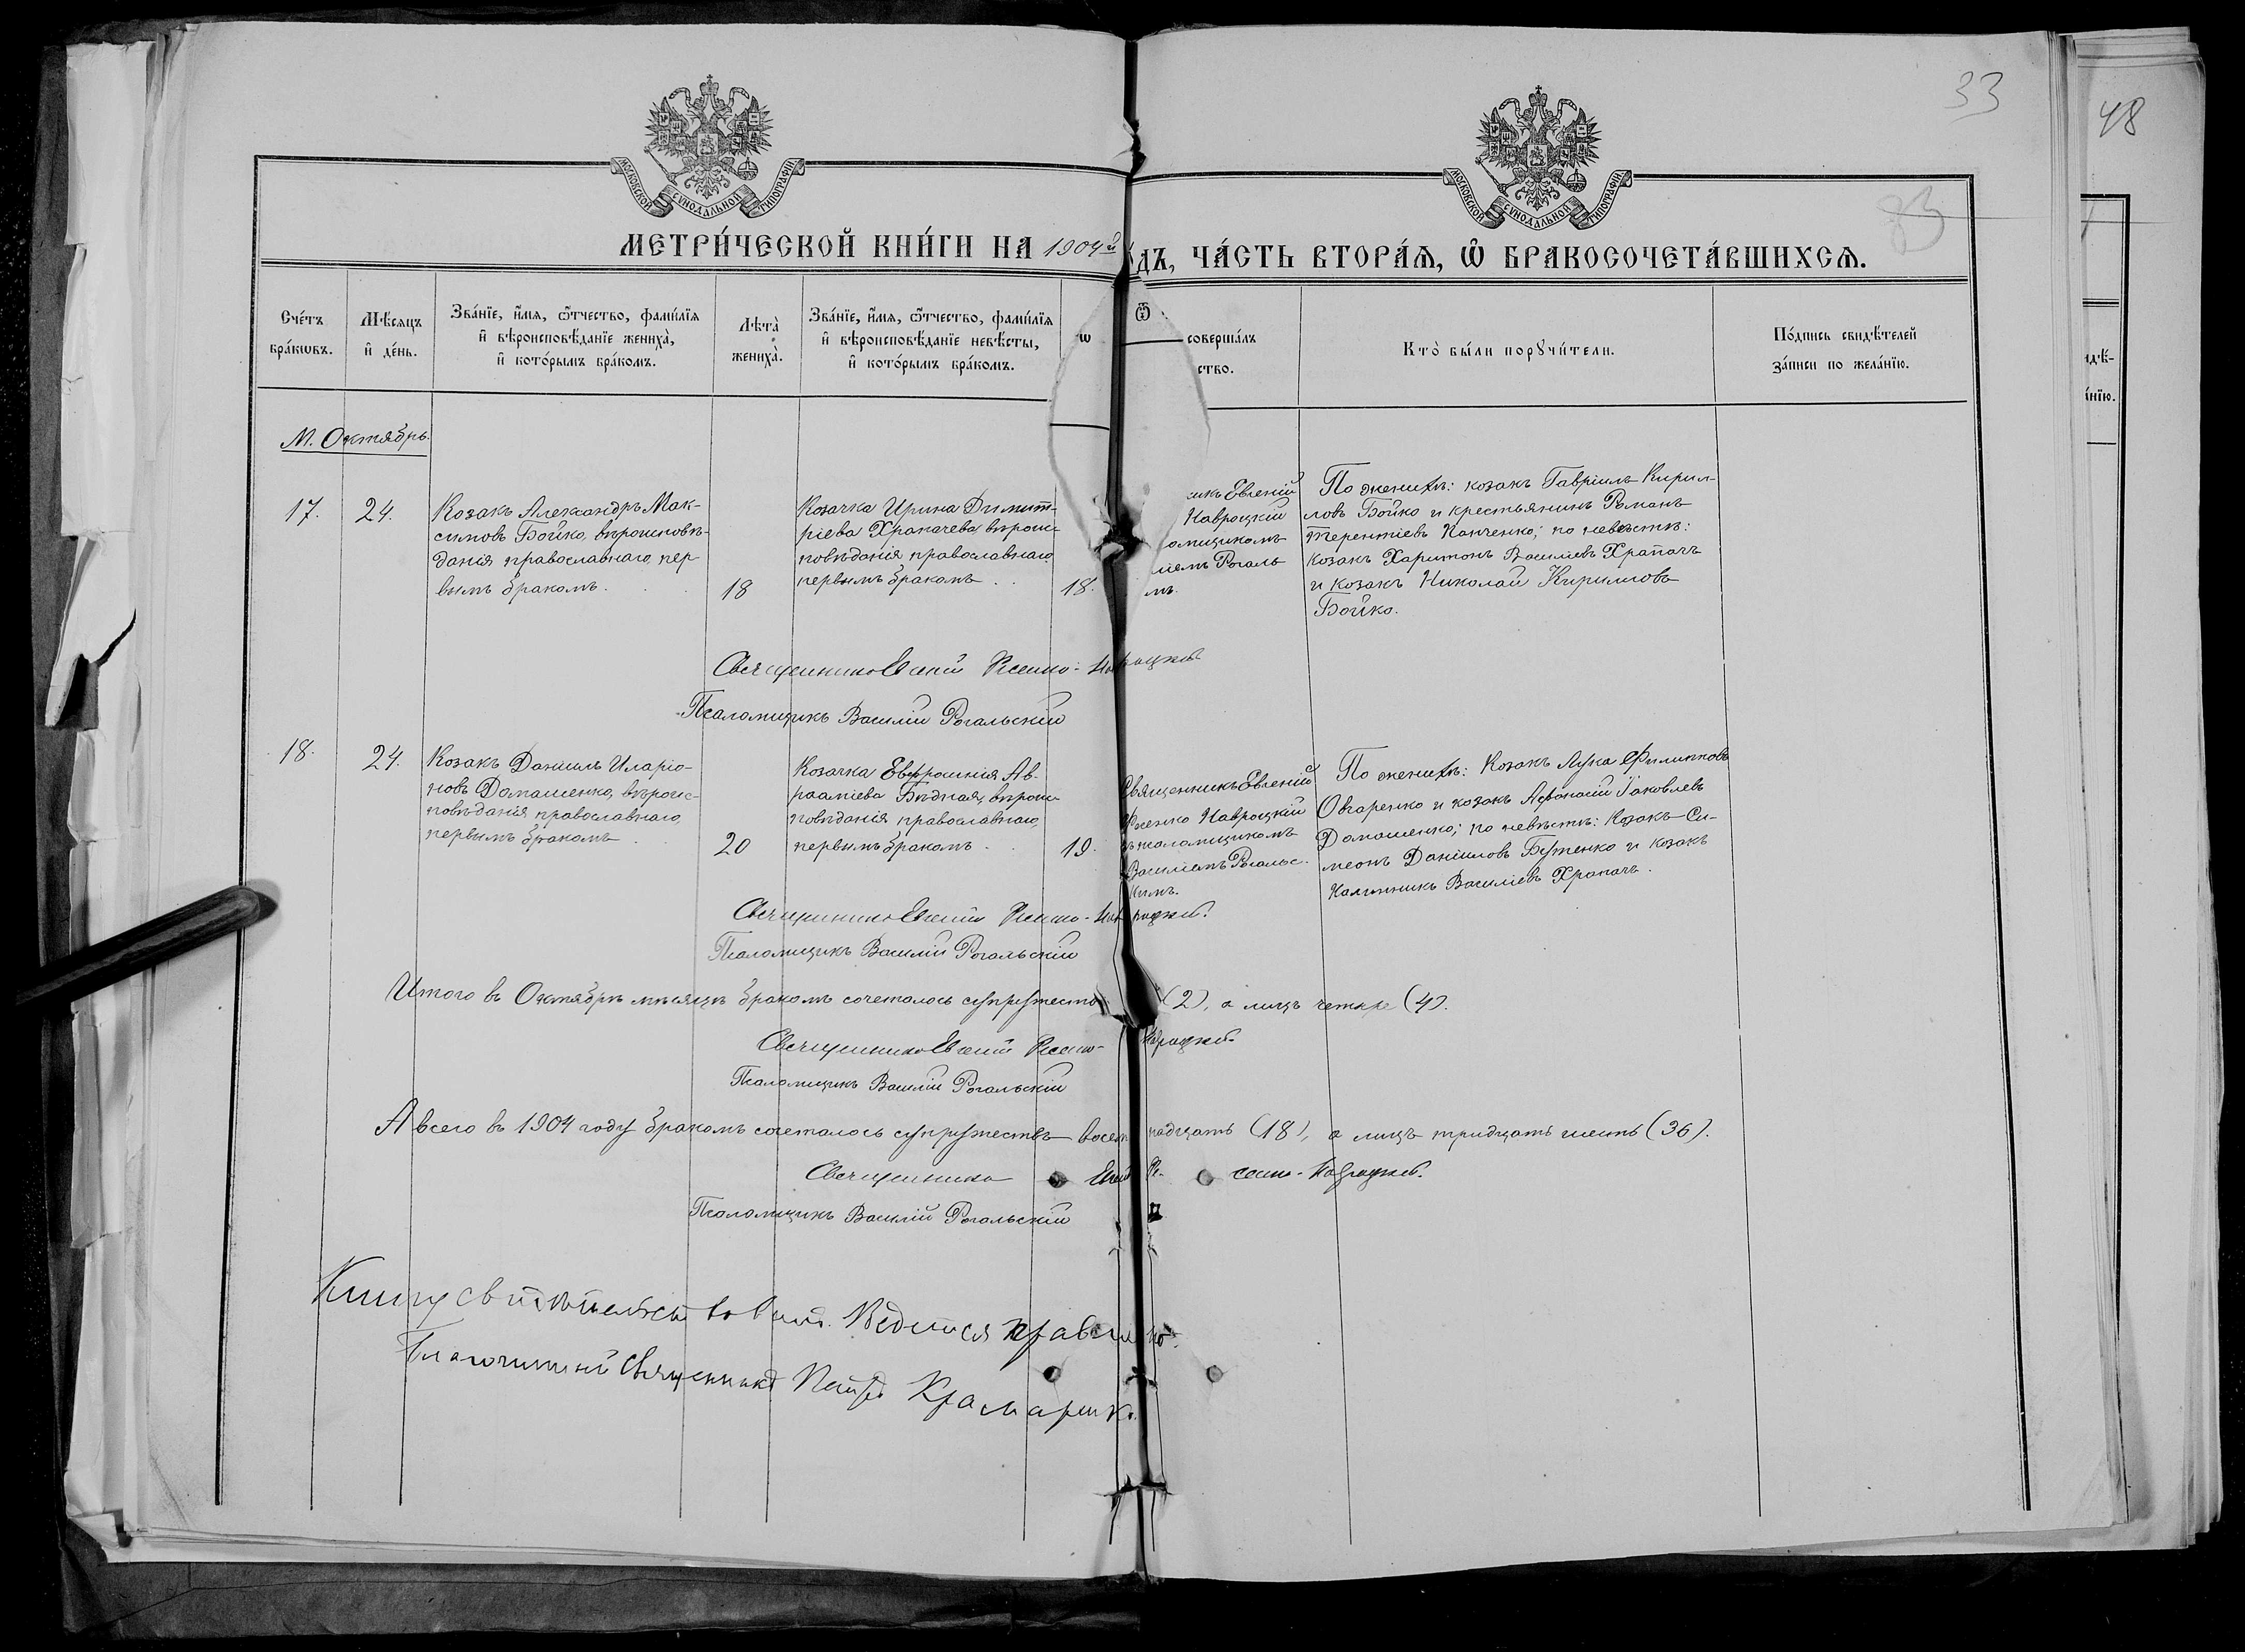 33
48
МОСКОВСКОЙ СѴНОДАЛЬНОЙ ТИПОГРАФІИ
МОСКОВСКОЙ СѴНОДАЛЬНОЙ ТИПОГРАФІИ
83
МЕТРИ́ЧЕСКОЙ КНИ́ГИ НА 1904й
ДЪ, ЧА́СТЬ ВТОРА́Ѧ, Ѡ БРАКОСОЧЕТА́ВШИХСѦ.
Сче́тъ
бра́кѡвъ.
Мѣ́сяцъ
и҆ де́нь.
Зва́нїе, и҆́мѧ, ѻ҆́тчество, фами́лїѧ
и҆ вѣроисповѣ́данїе жениха̀,
и҆ кото́рымъ бра́комъ.
Лѣ́та
жениха̀.
Зва́нїе, и҆́мѧ, ѻ҆́тчество, фами́лїѧ
и҆ вѣроисповѣ́данїе невѣ́сты,
и҆ кото́рымъ бра́комъ.
соверша́лъ
ство.
Кто̀ бы́ли порꙋчи́тели.
По́дпись свидѣ́телей
за́писи по жела́нїю.
М. Октябрь.
17.
24.
Козакъ Александръ Мак-
симовъ Бойко, вѣроисповѣ-
данія православнаго, пер-
вымъ бракомъ.
18
Козачка Ирина Димит-
ріева Храпачева, вѣроис-
повѣданія православнаго,
первымъ бракомъ
18.
икъ Евгеній
Навроцкій
омщикомъ
іемъ Рогаль
мъ.
По женихѣ: козакъ Гавріилъ Кирил-
ловъ Бойко и крестьянинъ Романъ
Терентіевъ Панченко; по невѣстѣ:
козакъ Харитонъ Василіевъ Храпачъ
и козакъ Николай Кирилловъ
Бойко.
Священникъ Евгеній Ксенко-Навроцкій
Псаломщикъ Василій Рогальскій
18.
24.
Козакъ Даніилъ Иларіо-
новъ Домашенко, вѣроис-
повѣданія православнаго,
первымъ бракомъ
20
Козачка Евфросинія Ав-
рааміева Бѣдная, вѣроис-
повѣданія православнаго,
первымъ бракомъ
19.
Священникъ Евгеній
Ксенко Навроцкій
съ псаломщикомъ
Василіемъ Рогальс-
кимъ.
По женихѣ: Козакъ Лука Филипповъ
Овчаренко и козакъ Афанасій Іаковлевъ
Домашенко; по невѣстѣ: Козакъ Си-
меонъ Даніиловъ Бутенко и козакъ
Калинникъ Василіевъ Храпачъ.
Священникъ Евгеній Ксенко-Навроцкій.
Псаломщикъ Василій Рогальскій
Итого въ Октябрѣ мѣсяцѣ бракомъ сочеталось супружествъ (2), а лицъ четыре (4).
Священникъ Евгеній Ксенко-Навроцкій.
Псаломщикъ Василій Рогальскій
А всего въ 1904 году бракомъ сочеталось супружествъ восемнадцать (18), а лицъ тридцать шесть (36).
Священникъ Евгеній Ксенко-Навроцкій.
Псаломщикъ Василій Рогальскій
Книгу свидѣтельствовалъ. Ведется правильно.
Благочинный Священникъ Петръ Крамаренко.